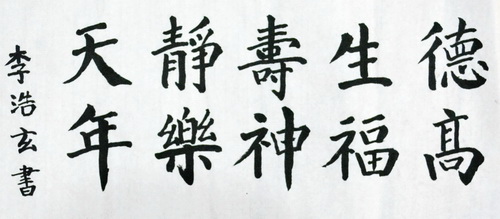 德高
生福
壽神
靜樂
天年
李浩玄書